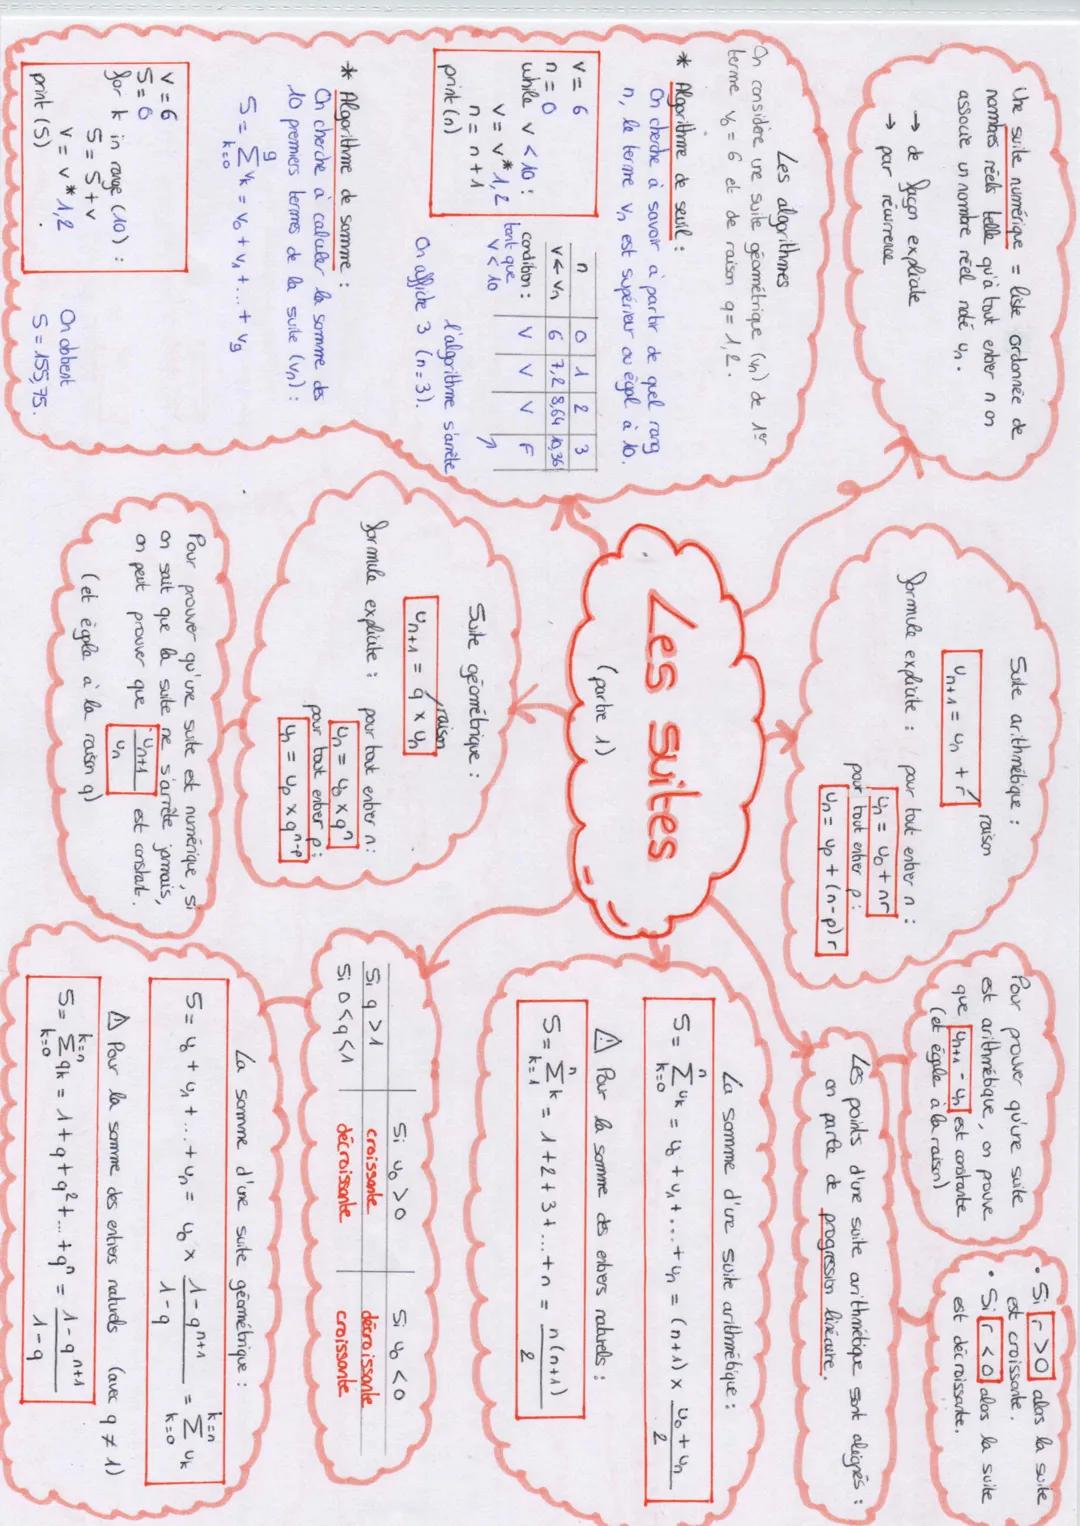 Les suites
(partie 1)
Une suite numérique = liste ordonnée de
nombres réels telle qu'à tout entier n on
associe un nombre réel noté uₙ.
→ de façon explicite
→ par récurrence
Suite arithmétique :
raison
uₙ₊₁ = uₙ + r
formule explicite : pour tout entier n :
uₙ = u₀ + nr
pour tout entier p :
uₙ = uₚ + (n-p)r
Pour prouver qu'une suite
est arithmétique, on prouve
que uₙ₊₁ - uₙ est constante
(et égale à la raison)
• Si r > 0 alors la suite
est croissante.
• Si r < 0 alors la suite
est décroissante.
Les points d'une suite arithmétique sont alignés :
on parle de progression linéaire.
La somme d'une suite arithmétique :
S = ∑ₖ₌₀ⁿ uₖ = u₀ + u₁ + ... + uₙ = (n+1) × (u₀ + uₙ)/2
⚠ Pour la somme des entiers naturels :
S = ∑ₖ₌₁ⁿ k = 1 + 2 + 3 + ... + n = n(n+1)/2
Les algorithmes
On considère une suite géométrique (vₙ) de 1er
terme v₀ = 6 et de raison q = 1,2.
* Algorithme de seuil :
On cherche à savoir à partir de quel rang
n, le terme vₙ est supérieur ou égal à 10.
v = 6
n = 0
while v < 10 :
v = v * 1,2
n = n + 1
print (n)
n 0 1 2 3
v ← vₙ 6 7,2 8,64 10,36
condition : V V V F
tant que
v < 10
l'algorithme s'arrête
On affiche 3 (n = 3).
* Algorithme de somme :
On cherche à calculer la somme des
10 premiers termes de la suite (vₙ) :
S = ∑ₖ₌₀⁹ vₖ = v₀ + v₁ + ... + v₉
v = 6
S = 0
for k in range (10) :
S = S + v
v = v * 1,2
print (S)
On obtient
S = 155,75.
Suite géométrique :
raison
uₙ₊₁ = q × uₙ
formule explicite : pour tout entier n :
uₙ = u₀ × qⁿ
pour tout entier p :
uₙ = uₚ × qⁿ⁻ᵖ
Pour prouver qu'une suite est numérique, si
on sait que la suite ne s'arrête jamais,
on peut prouver que uₙ₊₁/uₙ est constant.
(et égale à la raison q)
Si u₀ > 0 Si u₀ < 0
Si q > 1 croissante décroissante
Si 0 < q < 1 décroissante croissante
La somme d'une suite géométrique :
S = u₀ + u₁ + ... + uₙ = u₀ × (1 - qⁿ⁺¹)/(1 - q) = ∑ₖ₌₀ᵏ⁼ⁿ uₖ
⚠ Pour la somme des entiers naturels (avec q ≠ 1)
S = ∑ₖ₌₀ᵏ⁼ⁿ qk = 1 + q + q² + ... + qⁿ = (1 - qⁿ⁺¹)/(1 - q)